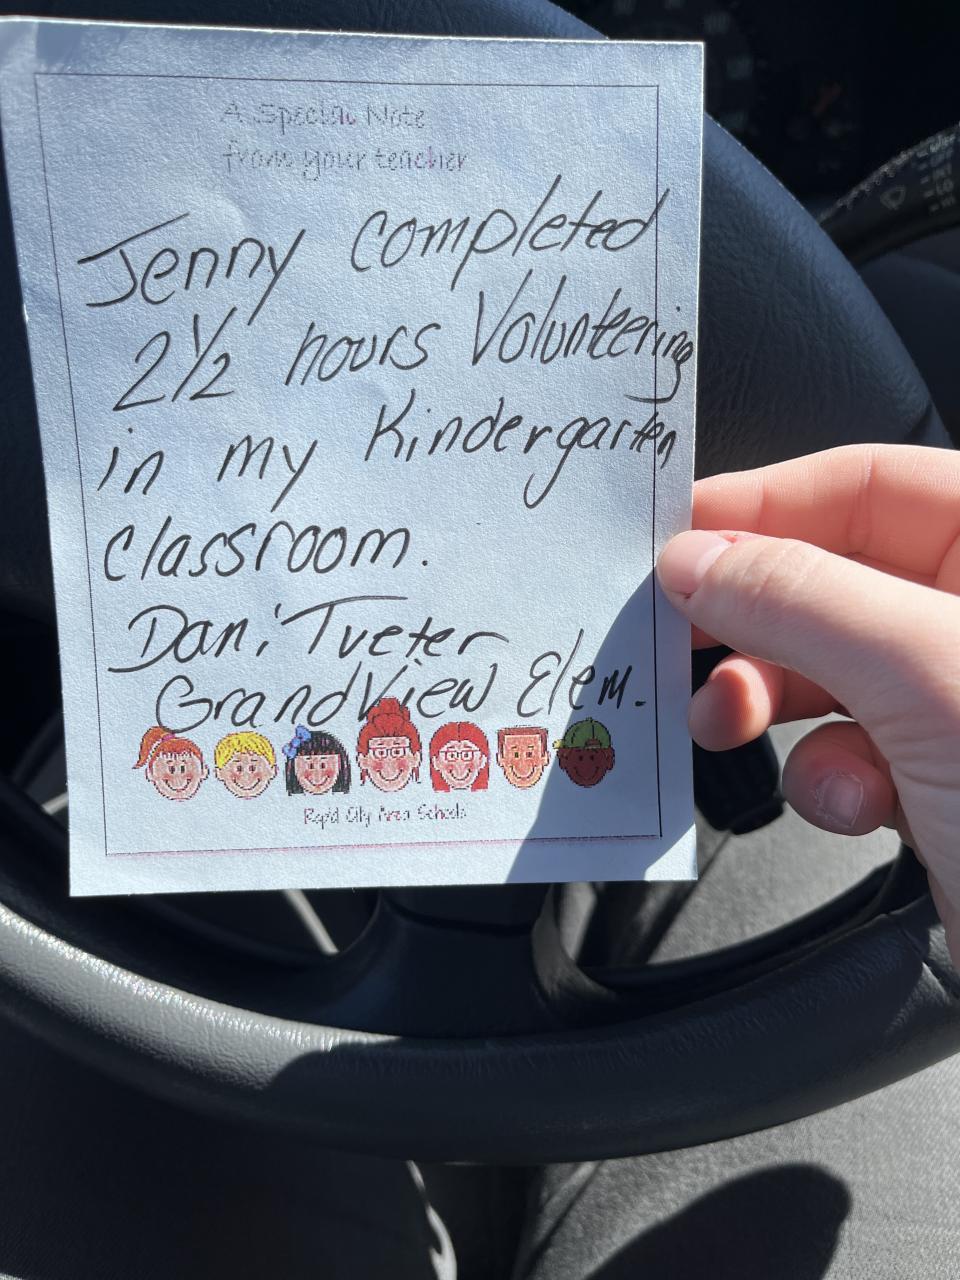 A Special Note
from your teacher
Jenny completed
2½ hours Volunteering
in my Kindergarten
classroom.
Dani Tveter
GrandView Elem.
Rapid City Area Schools